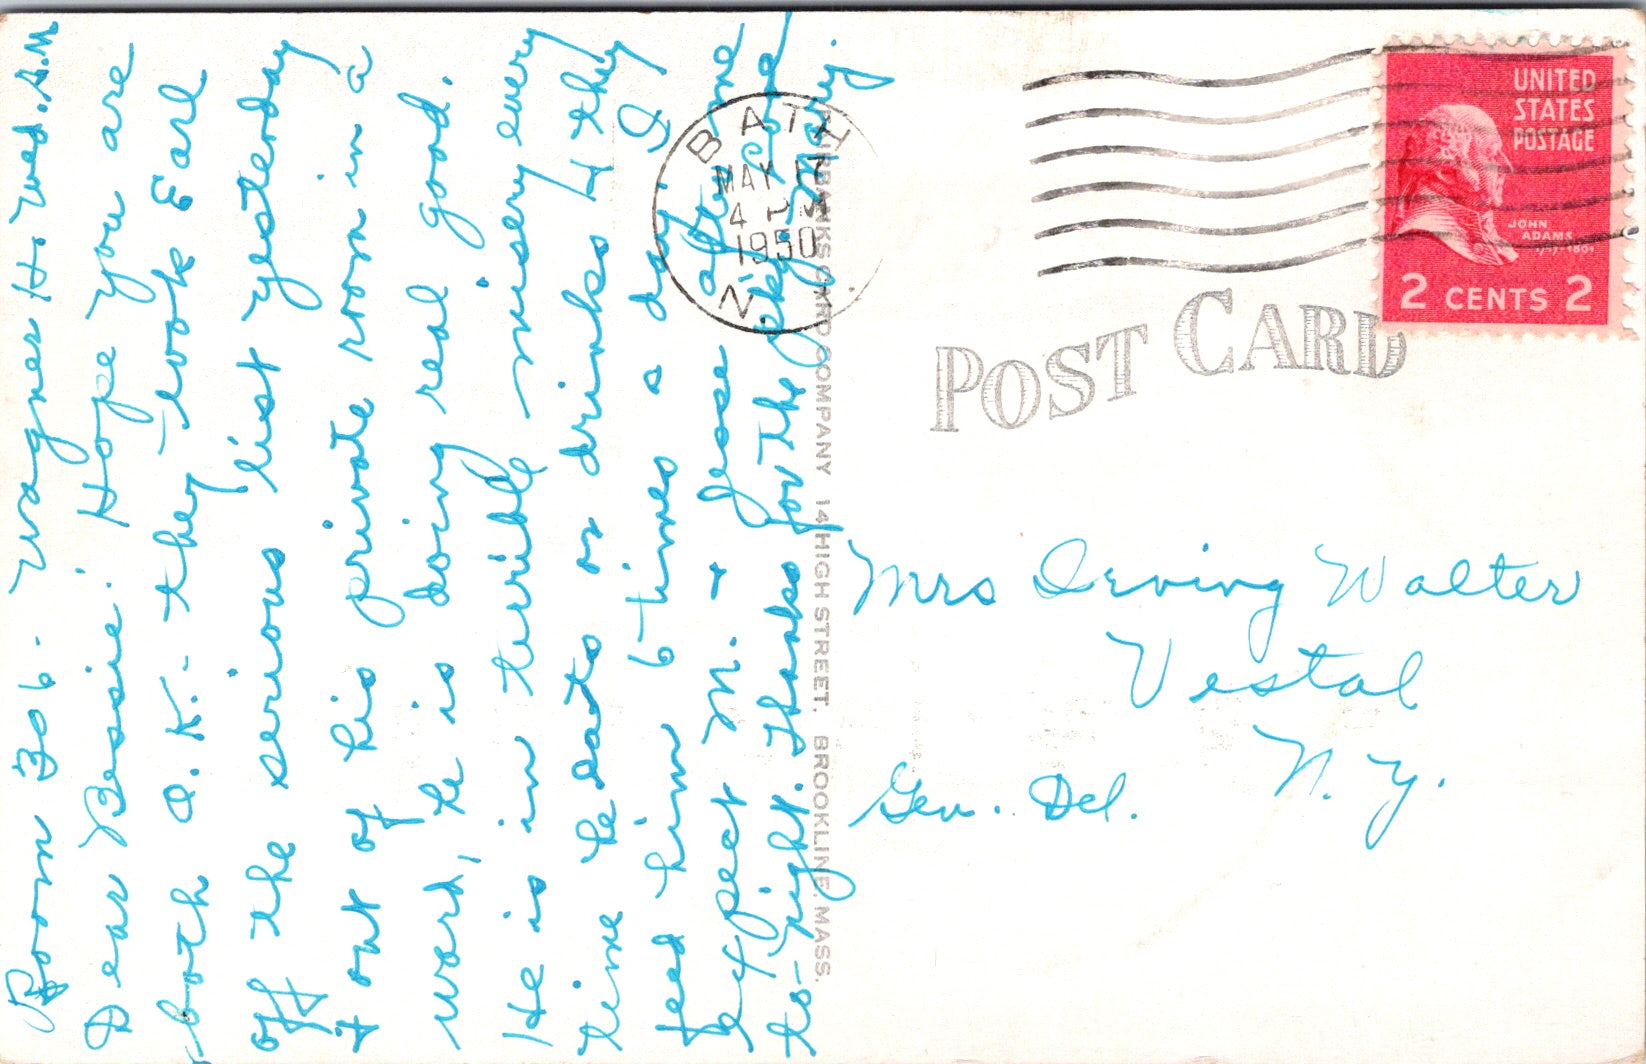 Room 306. Wagner H. Wed. A.M
Dear Bessie: Hope you are
both O.K. - they took Earl
off the serious list yesterday
+ out of his private room in a
ward, he is doing real good.
He is in terrible misery every
time he eats or drinks & they
feed him 6 times a day. I
expect M. & Jesse after me
to-night. Thanks for the
Mary.
BATH
MAY
4 PM
1950
N.
UNITED
STATES
POSTAGE
JOHN
ADAMS
2 CENTS 2
POST CARD
FAIRBANKS CARD COMPANY 14 HIGH STREET. BROOKLINE, MASS.
Mrs Irving Walter
Vestal
N. Y.
Gen. Del.